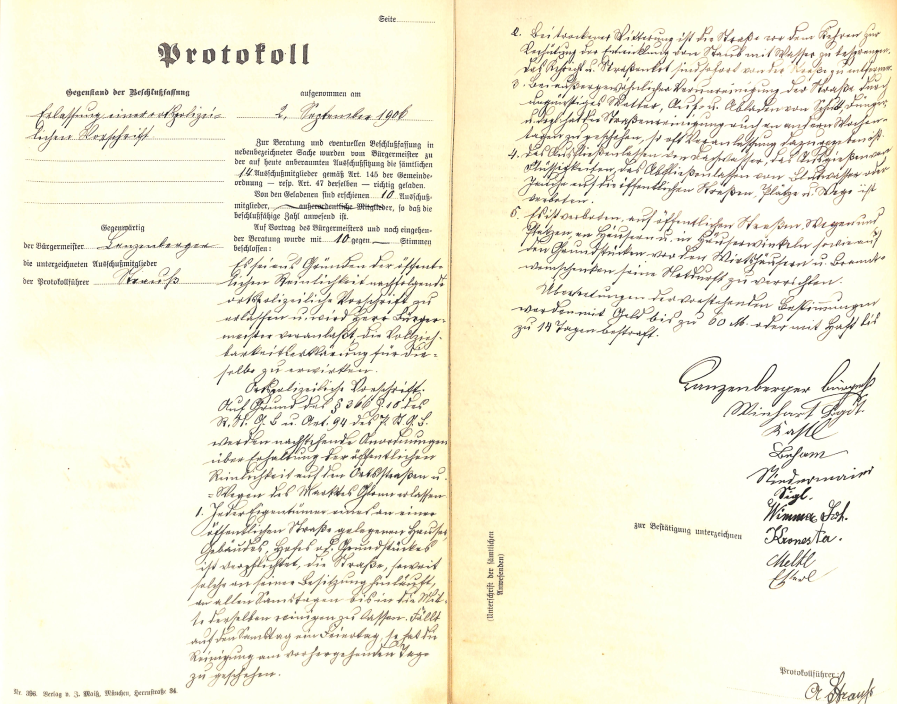 Seite
Protokoll
Gegenstand der Beschlußfassung
Erlassung einer ortspolizei-
lichen Vorschrift
aufgenommen am
2. September 1906
Zur Beratung und eventuellen Beschlußfassung in
nebenbezeichneter Sache wurden vom Bürgermeister zu
der auf heute anberaumten Ausschußsitzung die sämtlichen
14 Ausschußmitglieder gemäß Art. 145 der Gemeinde-
ordnung — resp. Art. 47 derselben — richtig geladen.
Von den Geladenen sind erschienen 10 Ausschuß-
mitglieder, außerordentliche Mitglieder, so daß die
beschlußfähige Zahl anwesend ist.
Auf Vortrag des Bürgermeisters und nach eingehen-
der Beratung wurde mit 10 gegen — Stimmen
beschlossen:
Gegenwärtig
der Bürgermeister Lanzenberger
die unterzeichneten Ausschußmitglieder
der Protokollführer Strauß
Es sei aus Gründen der öffent-
lichen Reinlichkeit nachfolgende
ortspolizeiliche Vorschrift zu
erlassen und wird Herr Bürger-
meister veranlaßt, die Vollzieh-
barkeitserklärung für die-
selbe zu erwirken.
Ortspolizeiliche Vorschrift.
Auf Grund des § 366 Z 10 des
R. St. G. B. u. Art. 94 des P. St. G. B.
werden nachstehende Anordnungen
über Erhaltung der öffentlichen
Reinlichkeit auf den Ortsstraßen u.
-Wegen des Marktes erlassen
1. Jeder Eigentümer eines an einer
öffentlichen Straße gelegenen Hauses,
Gebäudes, Hofes od. Grundstückes
ist verpflichtet, die Straße, soweit
solche an seiner Besitzung hinläuft,
an allen Samstagen bis in die Mit-
te derselben reinigen zu lassen. Fällt
auf den Samstag ein Feiertag, so hat die
Reinigung am vorhergehenden Tage
zu geschehen.
Nr. 396. Verlag v. J. Maiß, München, Herrnstraße 34.
2. Bei trockener Witterung ist die Straße vor dem Kehren zur
Verhütung der Entwicklung von Staub mit Wasser zu besprengen.
Das Kehricht u. Straßenkot sind sofort von der Straße zu entfernen.
3. Bei außergewöhnlicher Verunreinigung der Straße durch
ungünstiges Wetter, Auf- u. Abladen von Schutt, Dünger
u. dergl. hat die Straßenreinigung auch an andern Wochen-
tagen zu geschehen, so oft Veranlassung dazu geboten ist.
4. Das Ausfließenlassen, das Ausgießen von
Flüssigkeiten, das Abfließenlassen von oder
Jauche auf die öffentlichen Straßen, Plätze u. Wege ist
verboten.
5. Es ist verboten, auf öffentlichen Straßen, Wegen und
Plätzen, an Häusern u. in Häuserwinkeln, sowie auf
den Grundstücken vor den Wirtshäusern u. Brannt-
weinschenken seine Notdurft zu verrichten.
Übertretungen der vorstehenden Bestimmungen
werden mit Geld bis zu 60 M. oder mit Haft bis
zu 14 Tagen bestraft.
Lanzenberger Bürgermstr
Winhart
Kastl
Beham
Niedermaier
Segl.
Wimmer Joh.
Meltl
Esterl
zur Bestätigung unterzeichnen
(Unterschrift der sämtlichen
Anwesenden)
Protokollführer:
A. Strauß